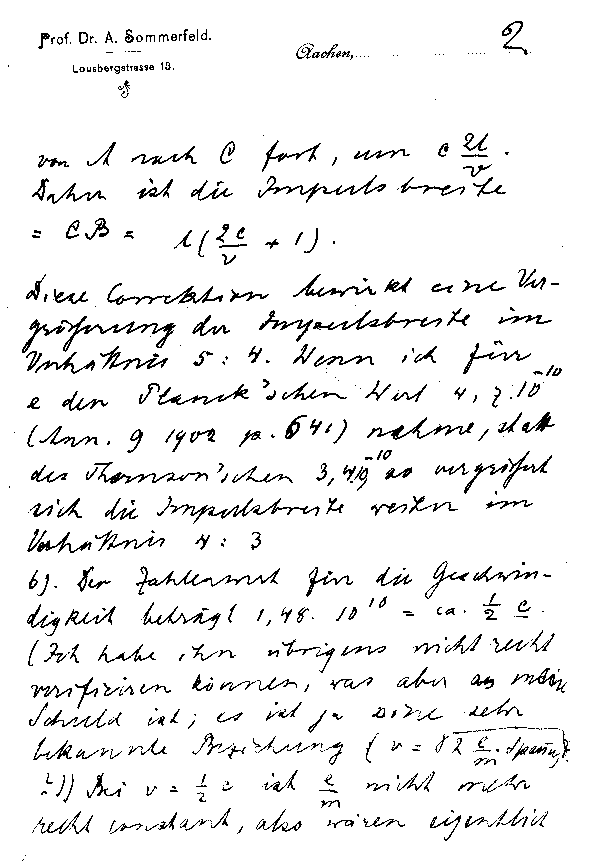 Prof. Dr. A. Sommerfeld.
Lousbergstrasse 18.
Aachen, 2
von A nach C fort, um c 2l/v.
Daher ist die Impulsbreite
= CB = l(2c/v + 1).
Diese Correktion bewirkt eine Ver-
größerung der Impulsbreite im
Verhältnis 5 : 4. Wenn ich für
e den Planck'schen Wert 4,7.10⁻¹⁰
(Ann. 9 1902 p. 641) nehme, statt
des Thomson'schen 3,4.10⁻¹⁰ so vergrößert
sich die Impulsbreite weiter im
Verhältnis 4 : 3
6). Der Zahlenwert für die Geschwin-
digkeit beträgt 1,48. 10¹⁰ = ca. ½ c.
(Ich habe ihn übrigens nicht recht
verificiren können, was aber an meine
Schuld ist; es ist ja eine sehr
bekannte Beziehung (v = √2 e/m. Spannug
?)) Bei v = ½ c ist e/m nicht mehr
recht constant, also wären eigentlich